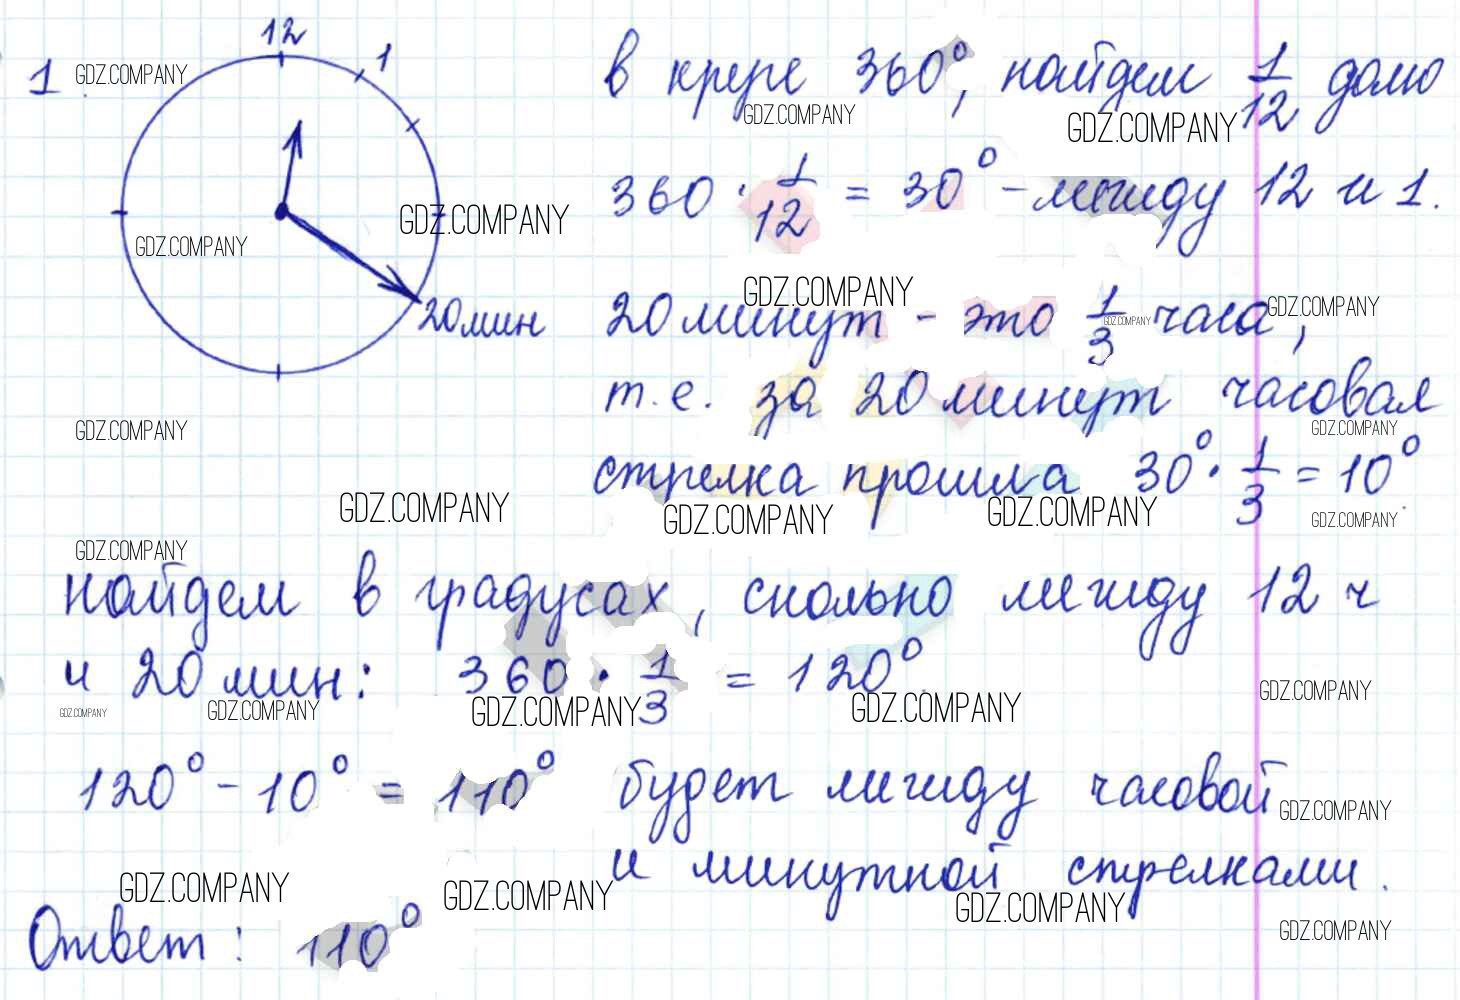 12
1
1.
GDZ.COMPANY
в круге 360°, найдем 1/12 долю
GDZ.COMPANY
GDZ.COMPANY
360 · 1/12 = 30° - между 12 и 1.
GDZ.COMPANY
GDZ.COMPANY
GDZ.COMPANY
GDZ.COMPANY
20 мин
20 минут - это 1/3 часа,
GDZ.COMPANY
т.е. за 20 минут часовая
GDZ.COMPANY
GDZ.COMPANY
стрелка прошла 30° · 1/3 = 10°.
GDZ.COMPANY
GDZ.COMPANY
GDZ.COMPANY
GDZ.COMPANY
GDZ.COMPANY
найдем в градусах, сколько между 12 ч
и 20 мин: 360 · 1/3 = 120°.
GDZ.COMPANY
GDZ.COMPANY
GDZ.COMPANY
GDZ.COMPANY
GDZ.COMPANY
120° - 10° = 110° будет между часовой
GDZ.COMPANY
и минутной стрелками.
GDZ.COMPANY
GDZ.COMPANY
GDZ.COMPANY
GDZ.COMPANY
Ответ: 110°